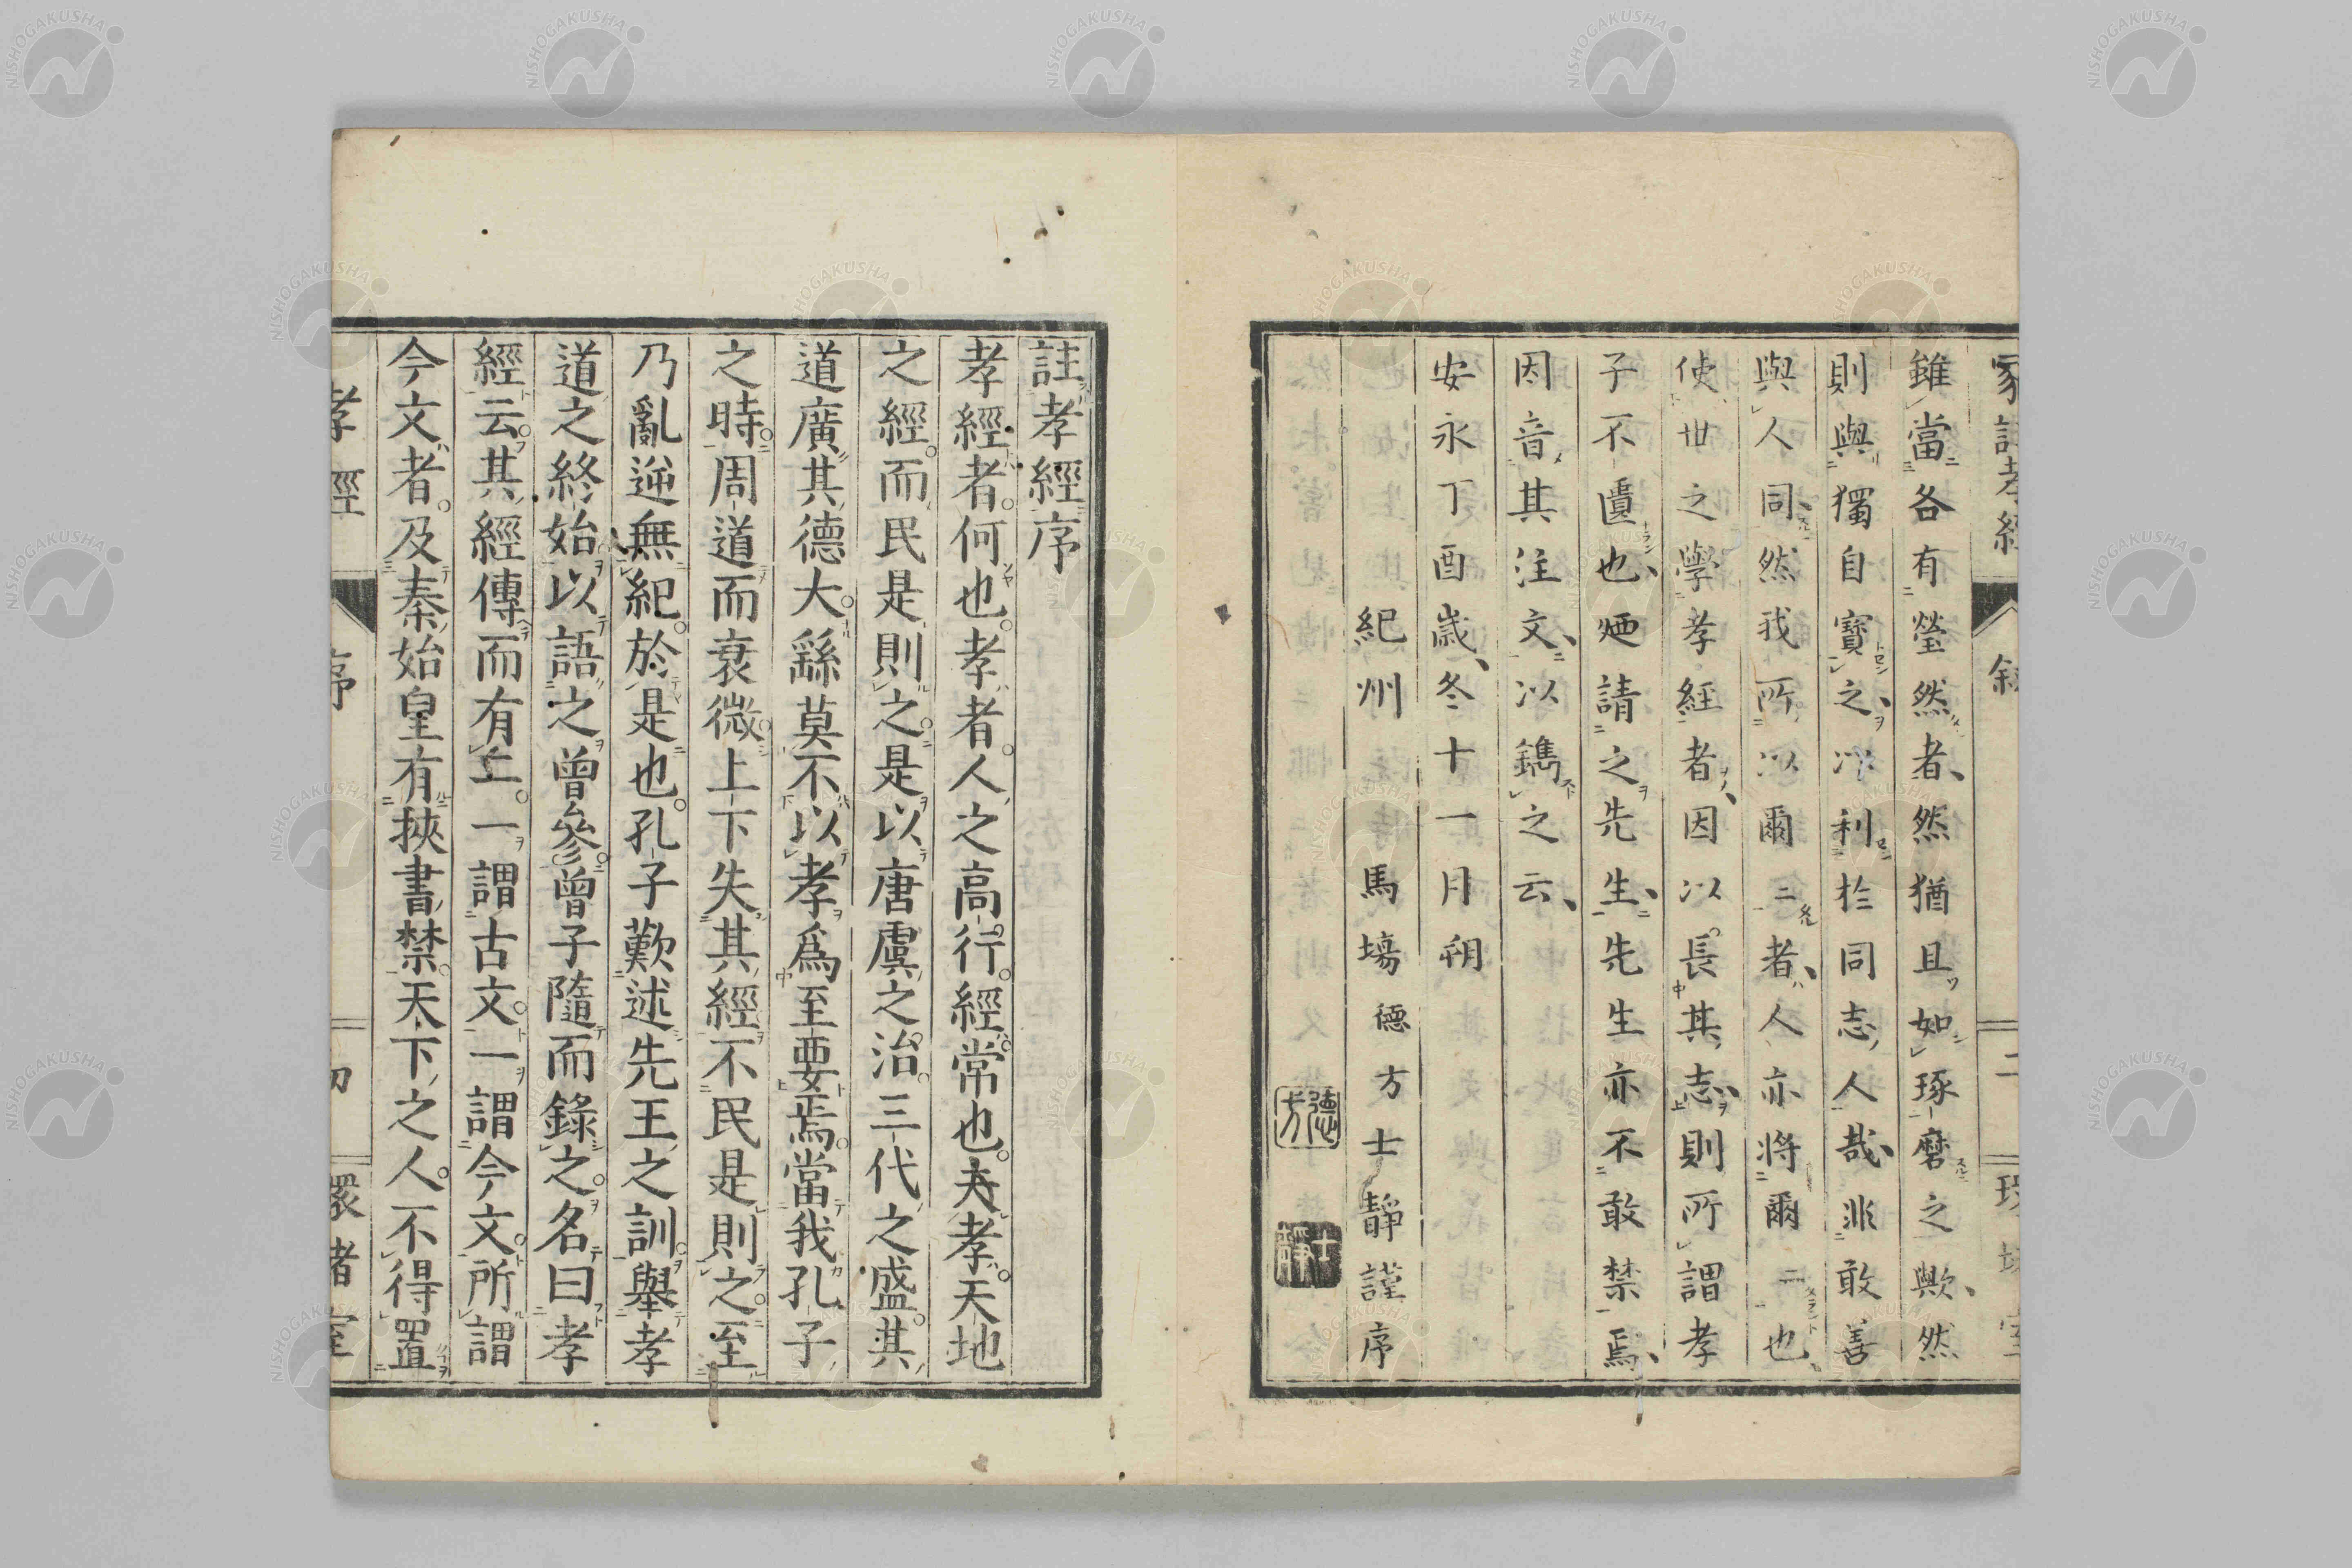 雖當各有瑩然者然猶且如琢磨之歟然
則與獨自寶之以利於同志人哉非敢善
與人同然我所以爾二者人亦將爾二也
使世之學孝經者因以長其志則所謂孝
子不匱也廼請之先生先生亦不敢禁焉
因音其注文以鐫之云
安永丁酉歲冬十一月朔
紀州 馬場德方士靜謹序
德方
士靜
註孝經序
孝經者何也孝者人之高行經常也夫孝天地
之經而民是則之是以唐虞之治三代之盛其
道廣其德大繇莫不以孝爲至要焉當我孔子
之時周道而衰微上下失其經不民是則之至
乃亂逆無紀於是也孔子歎述先王之訓舉孝
道之終始以語之曾參曾子隨而錄之名曰孝
經云其經傳而有二一謂古文一謂今文所謂
今文者及秦始皇有挾書禁天下之人不得置
孝經 序